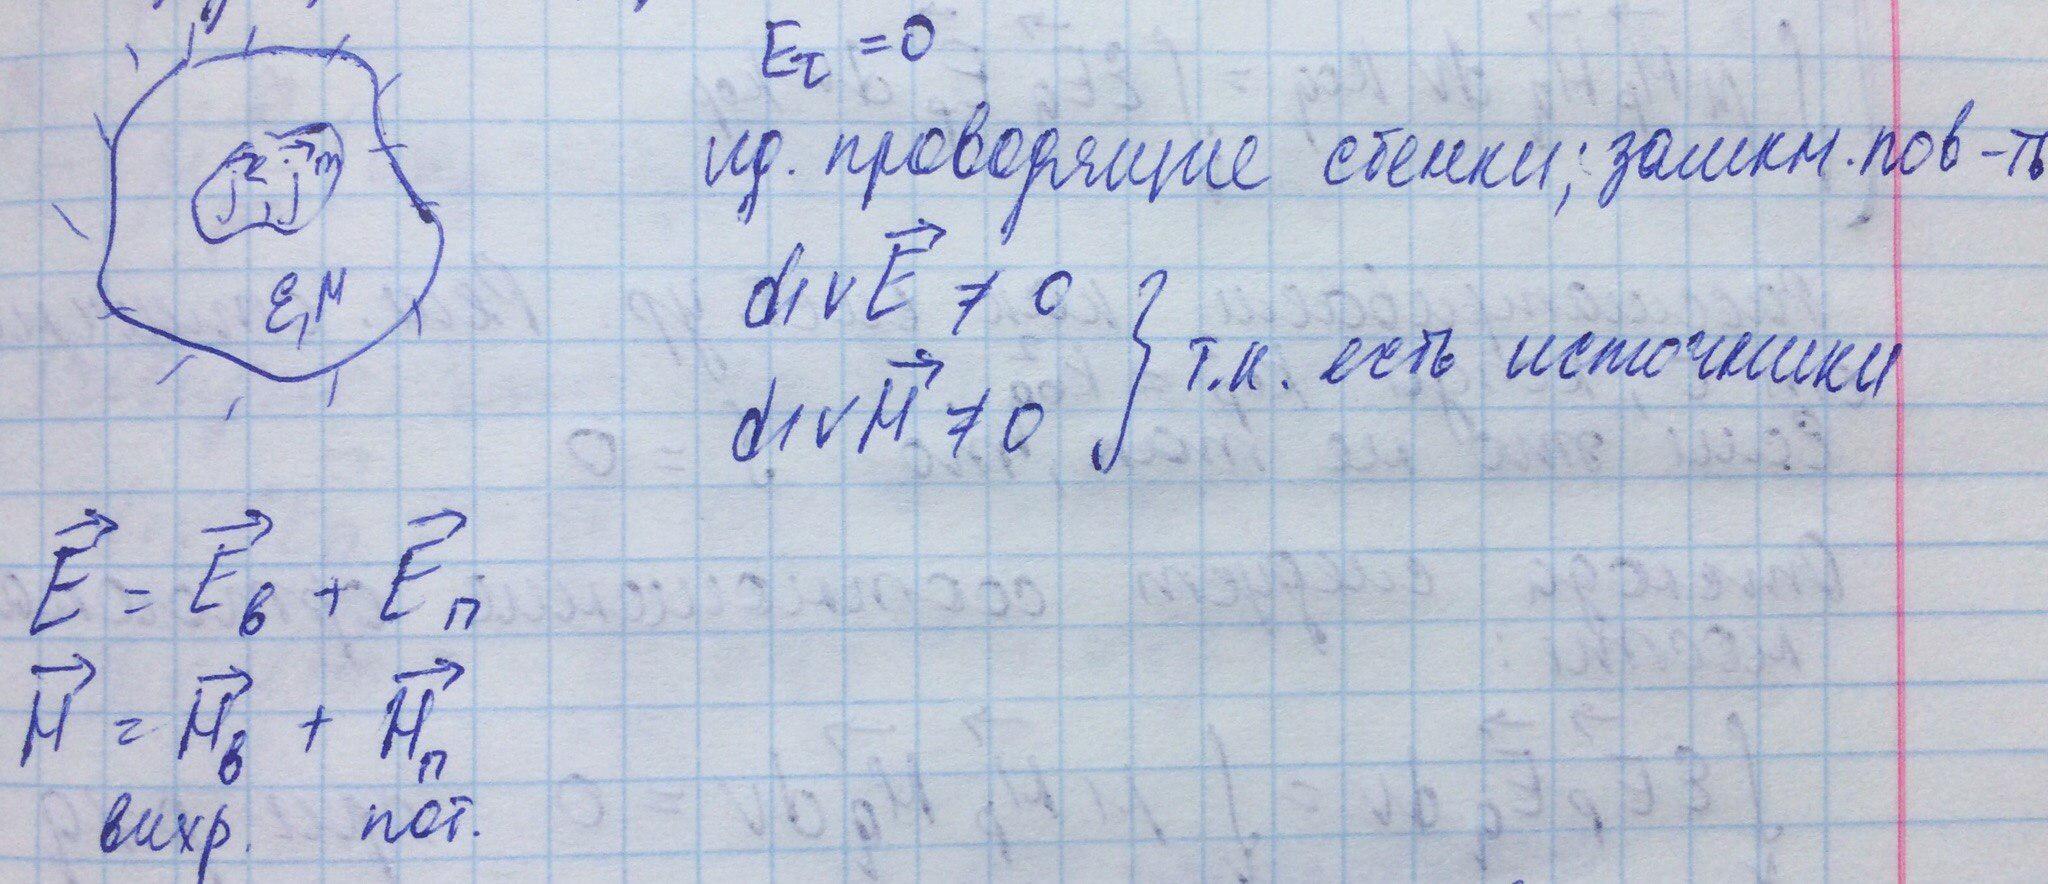 E_τ = 0
ид. проводящие стенки; замкн. пов-ть
j^э, j^м
ε, μ
div E⃗ ≠ 0
div H⃗ ≠ 0
т.к. есть источники
E⃗ = E⃗_в + E⃗_п
H⃗ = H⃗_в + H⃗_п
вихр. пот.